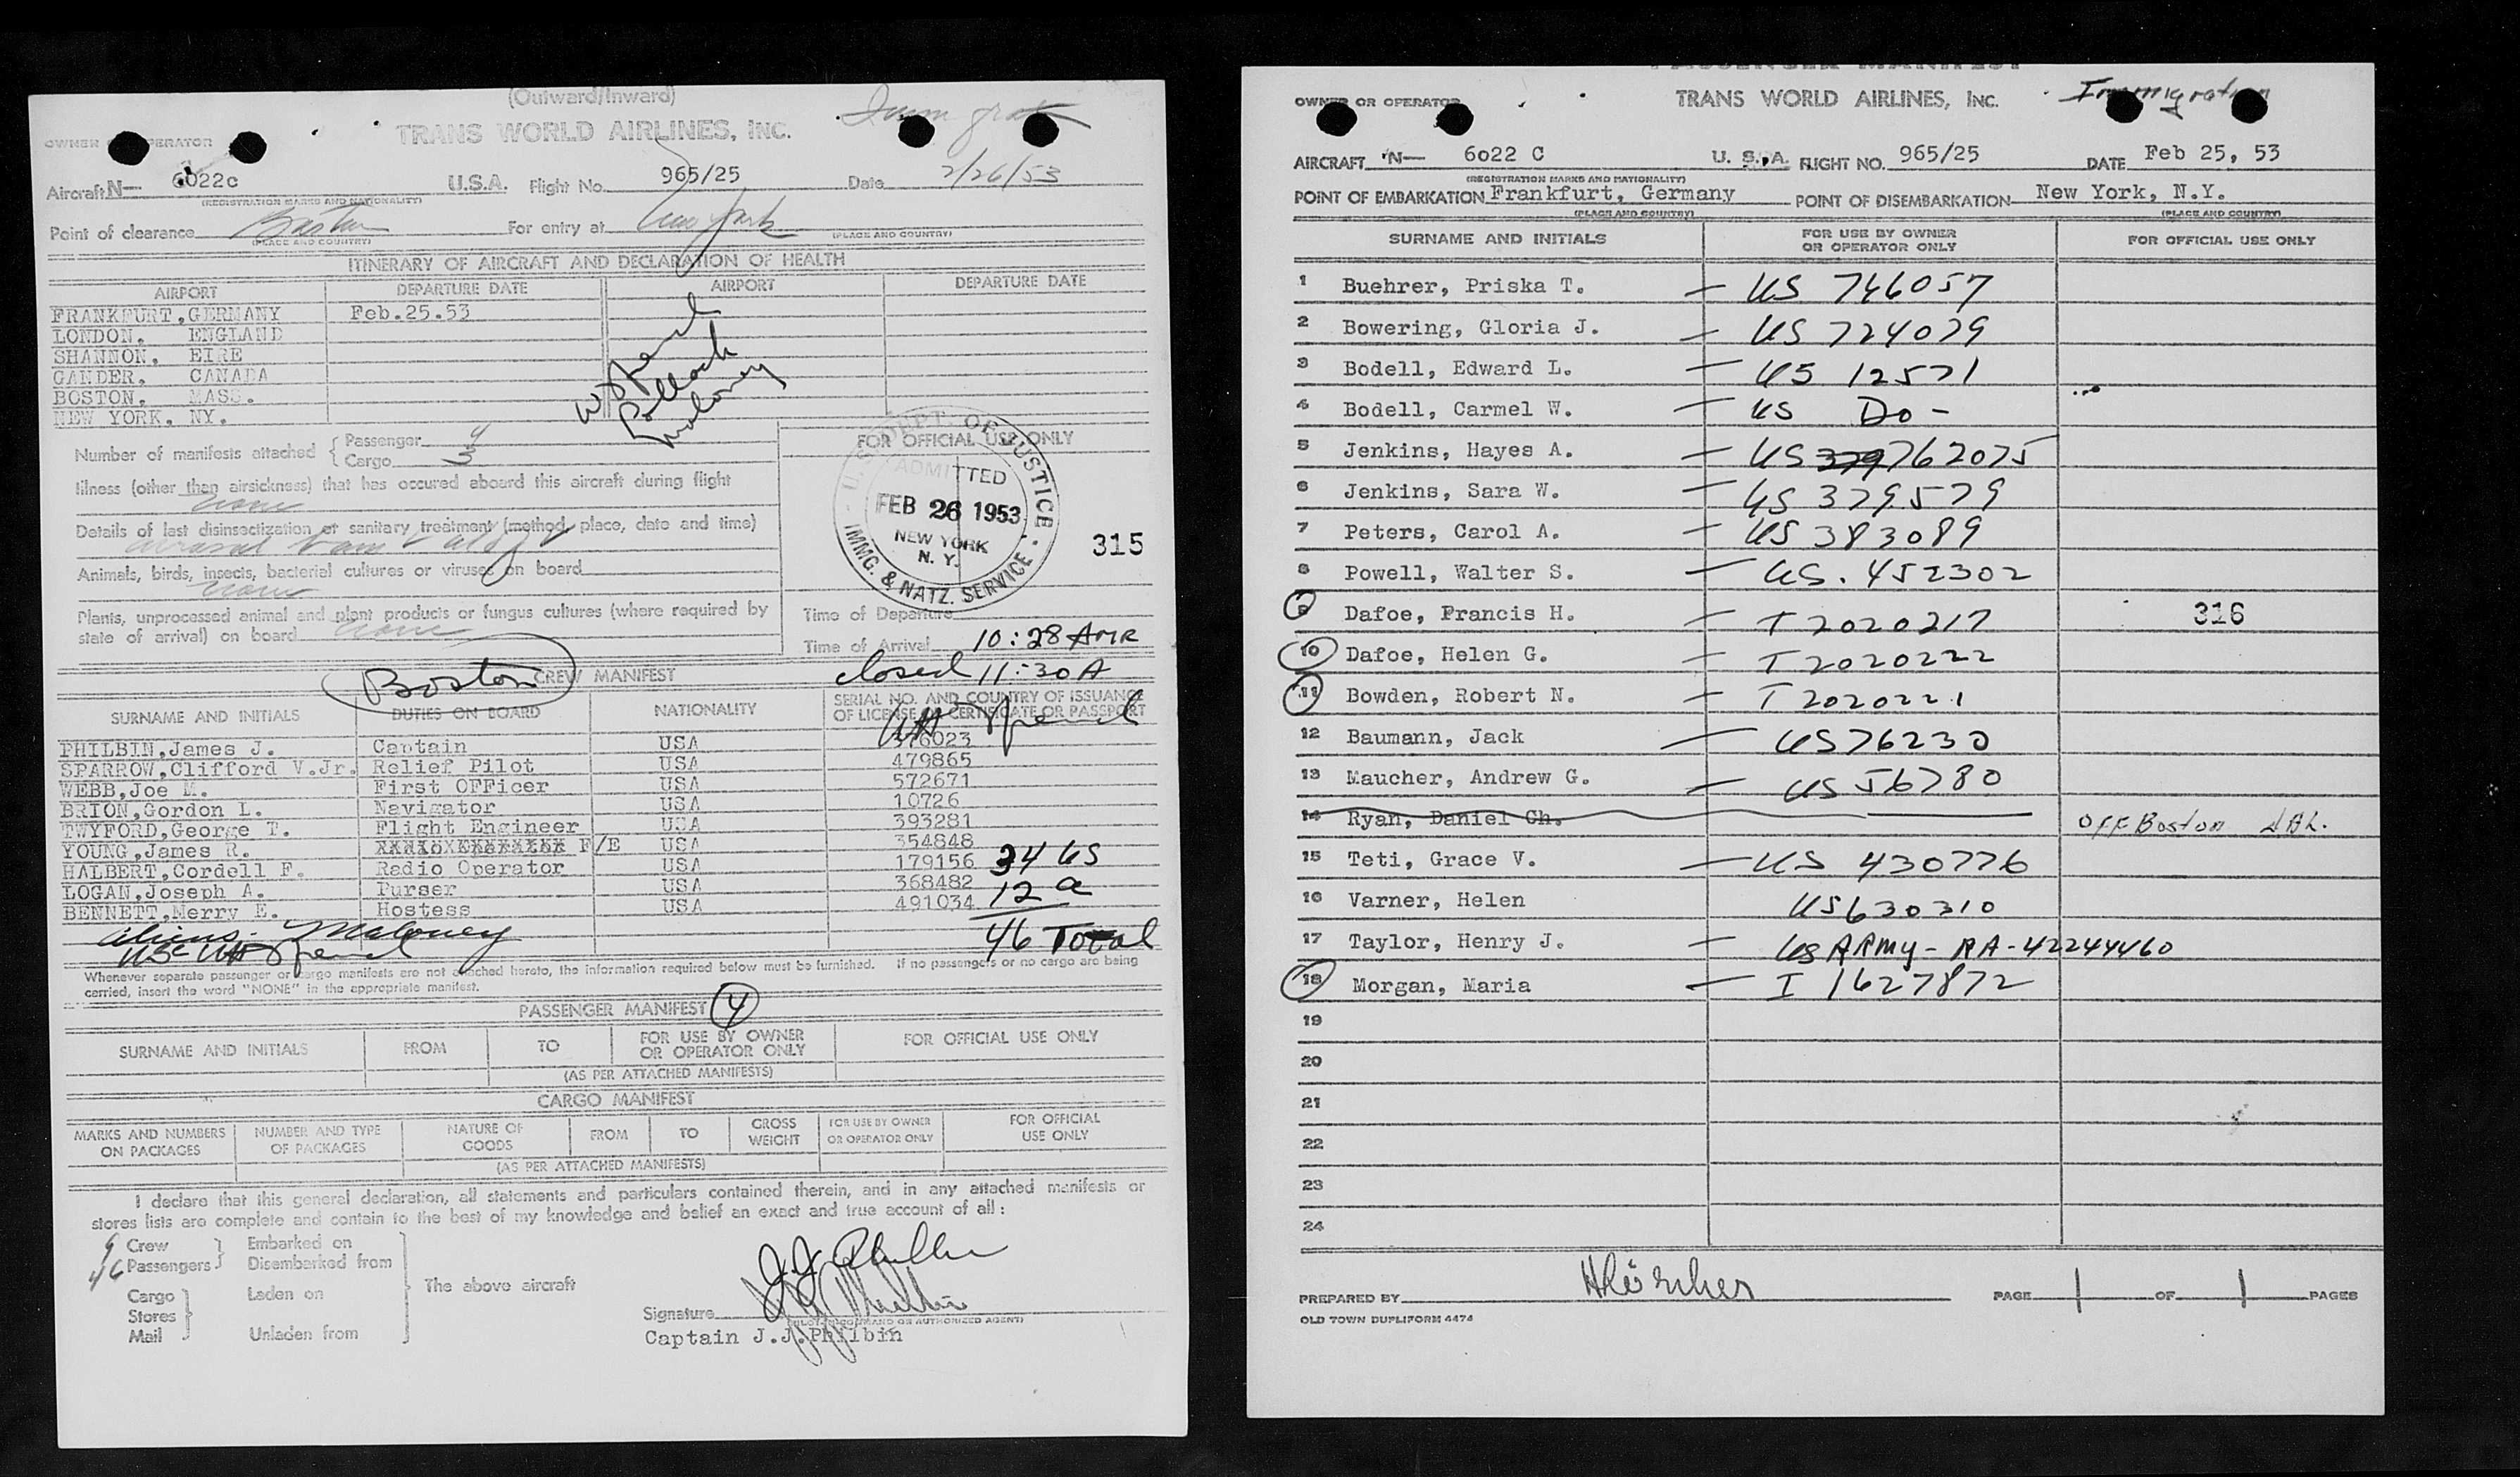 (Outward/Inward)
OWNER OPERATOR TRANS WORLD AIRLINES, INC.
Aircraft N— 6022c U.S.A. Flight No. 965/25 Date 2/26/53
(REGISTRATION MARKS AND NATIONALITY)
Point of clearance Boston For entry at New York
(PLACE AND COUNTRY) (PLACE AND COUNTRY)
ITINERARY OF AIRCRAFT AND DECLARATION OF HEALTH
AIRPORT DEPARTURE DATE AIRPORT DEPARTURE DATE
FRANKFURT,GERMANY Feb.25.53
LONDON, ENGLAND
SHANNON, EIRE
GANDER, CANADA
BOSTON, MASS.
NEW YORK, NY.
Pollack
Maloney
Number of manifests attached { Passenger 4
Cargo 3
FOR OFFICIAL USE ONLY
U.S. DEPT. OF JUSTICE
ADMITTED
FEB 26 1953
NEW YORK
N. Y.
IMMG. & NATZ. SERVICE
315
Illness (other than airsickness) that has occured aboard this aircraft during flight
none
Details of last disinsectization or sanitary treatment (method, place, date and time)
Animals, birds, insects, bacterial cultures or viruses on board
none
Plants, unprocessed animal and plant products or fungus cultures (where required by
state of arrival) on board none
Time of Departure
Time of Arrival 10:28 AMR
closed 11:30 A
Boston
CREW MANIFEST
SURNAME AND INITIALS DUTIES ON BOARD NATIONALITY SERIAL NO. AND COUNTRY OF ISSUANCE
OF LICENSE OR CERTIFICATE OR PASSPORT
PHILBIN,James J. Captain USA 376023
SPARROW,Clifford V.Jr. Relief Pilot USA 479865
WEBB,Joe M. First OFFicer USA 572671
BRION,Gordon L. Navigator USA 10726
TWYFORD,George T. Flight Engineer USA 393281
YOUNG,James R. F/E USA 354848
HALBERT,Cordell F. Radio Operator USA 179156 34 US
LOGAN,Joseph A. Purser USA 368482 12 a
BENNETT,Merry E. Hostess USA 491034
46 Total
aliens: Maloney
USC
Whenever separate passenger or cargo manifests are not attached hereto, the information required below must be furnished. If no passengers or no cargo are being
carried, insert the word "NONE" in the appropriate manifest.
PASSENGER MANIFEST 4
SURNAME AND INITIALS FROM TO FOR USE BY OWNER
OR OPERATOR ONLY FOR OFFICIAL USE ONLY
(AS PER ATTACHED MANIFESTS)
CARGO MANIFEST
MARKS AND NUMBERS
ON PACKAGES NUMBER AND TYPE
OF PACKAGES NATURE OF
GOODS FROM TO GROSS
WEIGHT FOR USE BY OWNER
OR OPERATOR ONLY FOR OFFICIAL
USE ONLY
(AS PER ATTACHED MANIFESTS)
I declare that this general declaration, all statements and particulars contained therein, and in any attached manifests or
stores lists are complete and contain to the best of my knowledge and belief an exact and true account of all:
9 Crew } Embarked on
46 Passengers } Disembarked from
Cargo Laden on The above aircraft
Stores
Mail Unladen from
Signature J.J. Philbin
(PILOT-IN-COMMAND OR AUTHORIZED AGENT)
Captain J.J.Philbin
PASSENGER MANIFEST
OWNER OR OPERATOR TRANS WORLD AIRLINES, INC. Immigration
AIRCRAFT N— 6022 C U. S. A. FLIGHT NO. 965/25 DATE Feb 25, 53
(REGISTRATION MARKS AND NATIONALITY)
POINT OF EMBARKATION Frankfurt, Germany POINT OF DISEMBARKATION New York, N.Y.
(PLACE AND COUNTRY) (PLACE AND COUNTRY)
SURNAME AND INITIALS FOR USE BY OWNER
OR OPERATOR ONLY FOR OFFICIAL USE ONLY
1 Buehrer, Priska T. — US 746057
2 Bowering, Gloria J. — US 724079
3 Bodell, Edward L. — US 12571
4 Bodell, Carmel W. — US Do -
5 Jenkins, Hayes A. — US 379 762075
6 Jenkins, Sara W. — US 379579
7 Peters, Carol A. — US 383089
8 Powell, Walter S. — US. 452302
9 Dafoe, Francis H. — T 2020217 316
10 Dafoe, Helen G. — T 2020222
11 Bowden, Robert N. — T 2020221
12 Baumann, Jack — US 76230
13 Maucher, Andrew G. — US 56780
14 Ryan, Daniel Ch. OFF Boston
15 Teti, Grace V. — US 430776
16 Varner, Helen US 630310
17 Taylor, Henry J. — US ARMY - RA-42244460
18 Morgan, Maria — I 1627872
19
20
21
22
23
24
PREPARED BY PAGE 1 OF 1 PAGES
OLD TOWN DUPLIFORM 4474